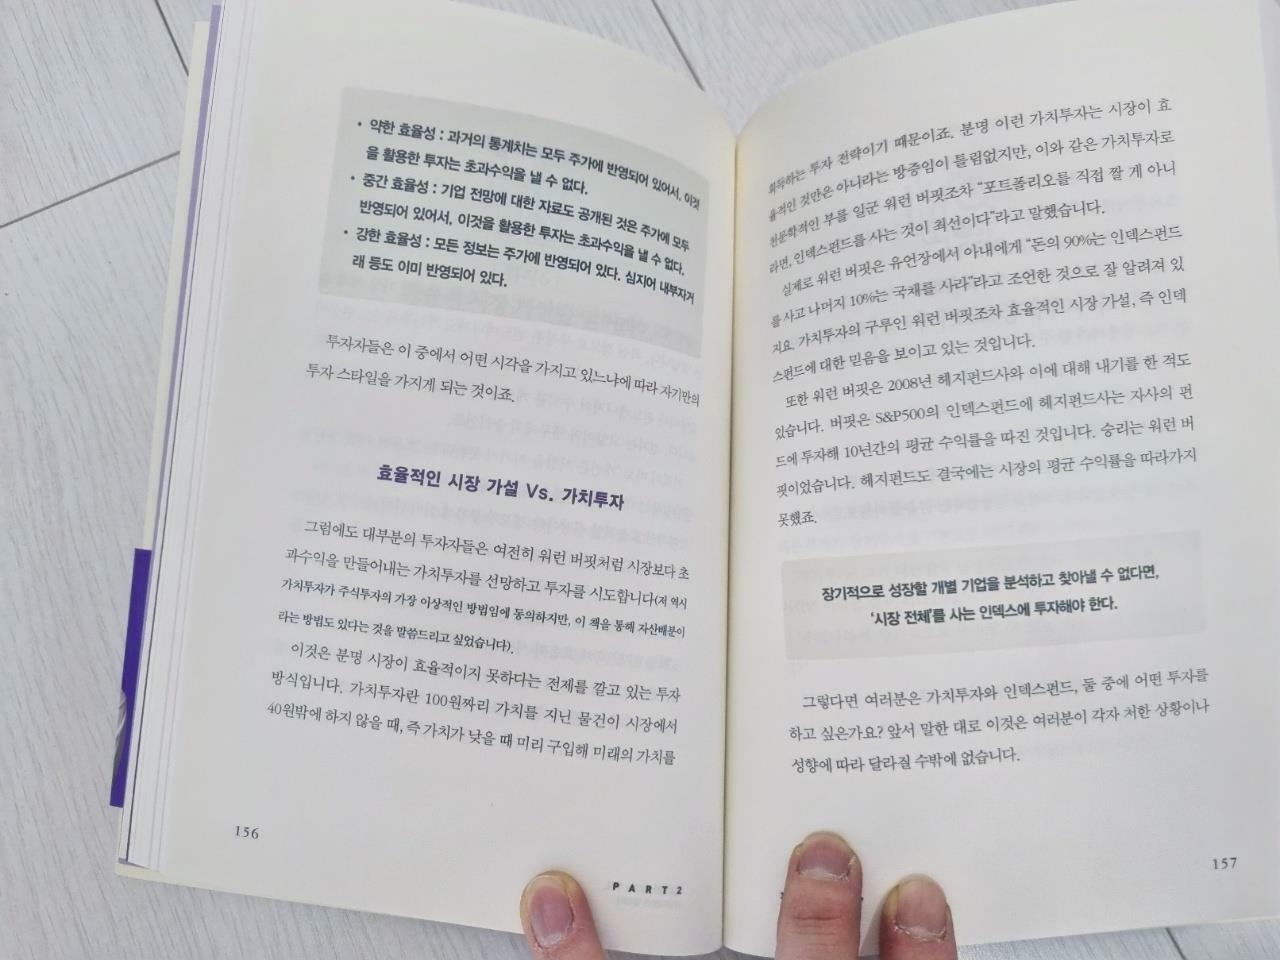 • 약한 효율성 : 과거의 통계치는 모두 주가에 반영되어 있어서, 이것
을 활용한 투자는 초과수익을 낼 수 없다.
• 중간 효율성 : 기업 전망에 대한 자료도 공개된 것은 주가에 모두
반영되어 있어서, 이것을 활용한 투자는 초과수익을 낼 수 없다.
• 강한 효율성 : 모든 정보는 주가에 반영되어 있다. 심지어 내부자거
래 등도 이미 반영되어 있다.
투자자들은 이 중에서 어떤 시각을 가지고 있느냐에 따라 자기만의
투자 스타일을 가지게 되는 것이죠.
효율적인 시장 가설 Vs. 가치투자
그럼에도 대부분의 투자자들은 여전히 워런 버핏처럼 시장보다 초
과수익을 만들어내는 가치투자를 선망하고 투자를 시도합니다(저 역시
가치투자가 주식투자의 가장 이상적인 방법임에 동의하지만, 이 책을 통해 자산배분이
라는 방법도 있다는 것을 말씀드리고 싶었습니다).
이것은 분명 시장이 효율적이지 못하다는 전제를 깔고 있는 투자
방식입니다. 가치투자란 100원짜리 가치를 지닌 물건이 시장에서
40원밖에 하지 않을 때, 즉 가치가 낮을 때 미리 구입해 미래의 가치를
156
PART 2
획득하는 투자 전략이기 때문이죠. 분명 이런 가치투자는 시장이 효
율적인 것만은 아니라는 방증임이 틀림없지만, 이와 같은 가치투자로
천문학적인 부를 일군 워런 버핏조차 “포트폴리오를 직접 짤 게 아니
라면, 인덱스펀드를 사는 것이 최선이다”라고 말했습니다.
실제로 워런 버핏은 유언장에서 아내에게 “돈의 90%는 인덱스펀드
를 사고 나머지 10%는 국채를 사라”라고 조언한 것으로 잘 알려져 있
지요. 가치투자의 구루인 워런 버핏조차 효율적인 시장 가설, 즉 인덱
스펀드에 대한 믿음을 보이고 있는 것입니다.
또한 워런 버핏은 2008년 헤지펀드사와 이에 대해 내기를 한 적도
있습니다. 버핏은 S&P500의 인덱스펀드에 헤지펀드사는 자사의 펀
드에 투자해 10년간의 평균 수익률을 따진 것입니다. 승리는 워런 버
핏이었습니다. 헤지펀드도 결국에는 시장의 평균 수익률을 따라가지
못했죠.
장기적으로 성장할 개별 기업을 분석하고 찾아낼 수 없다면,
‘시장 전체’를 사는 인덱스에 투자해야 한다.
그렇다면 여러분은 가치투자와 인덱스펀드, 둘 중에 어떤 투자를
하고 싶은가요? 앞서 말한 대로 이것은 여러분이 각자 처한 상황이나
성향에 따라 달라질 수밖에 없습니다.
157